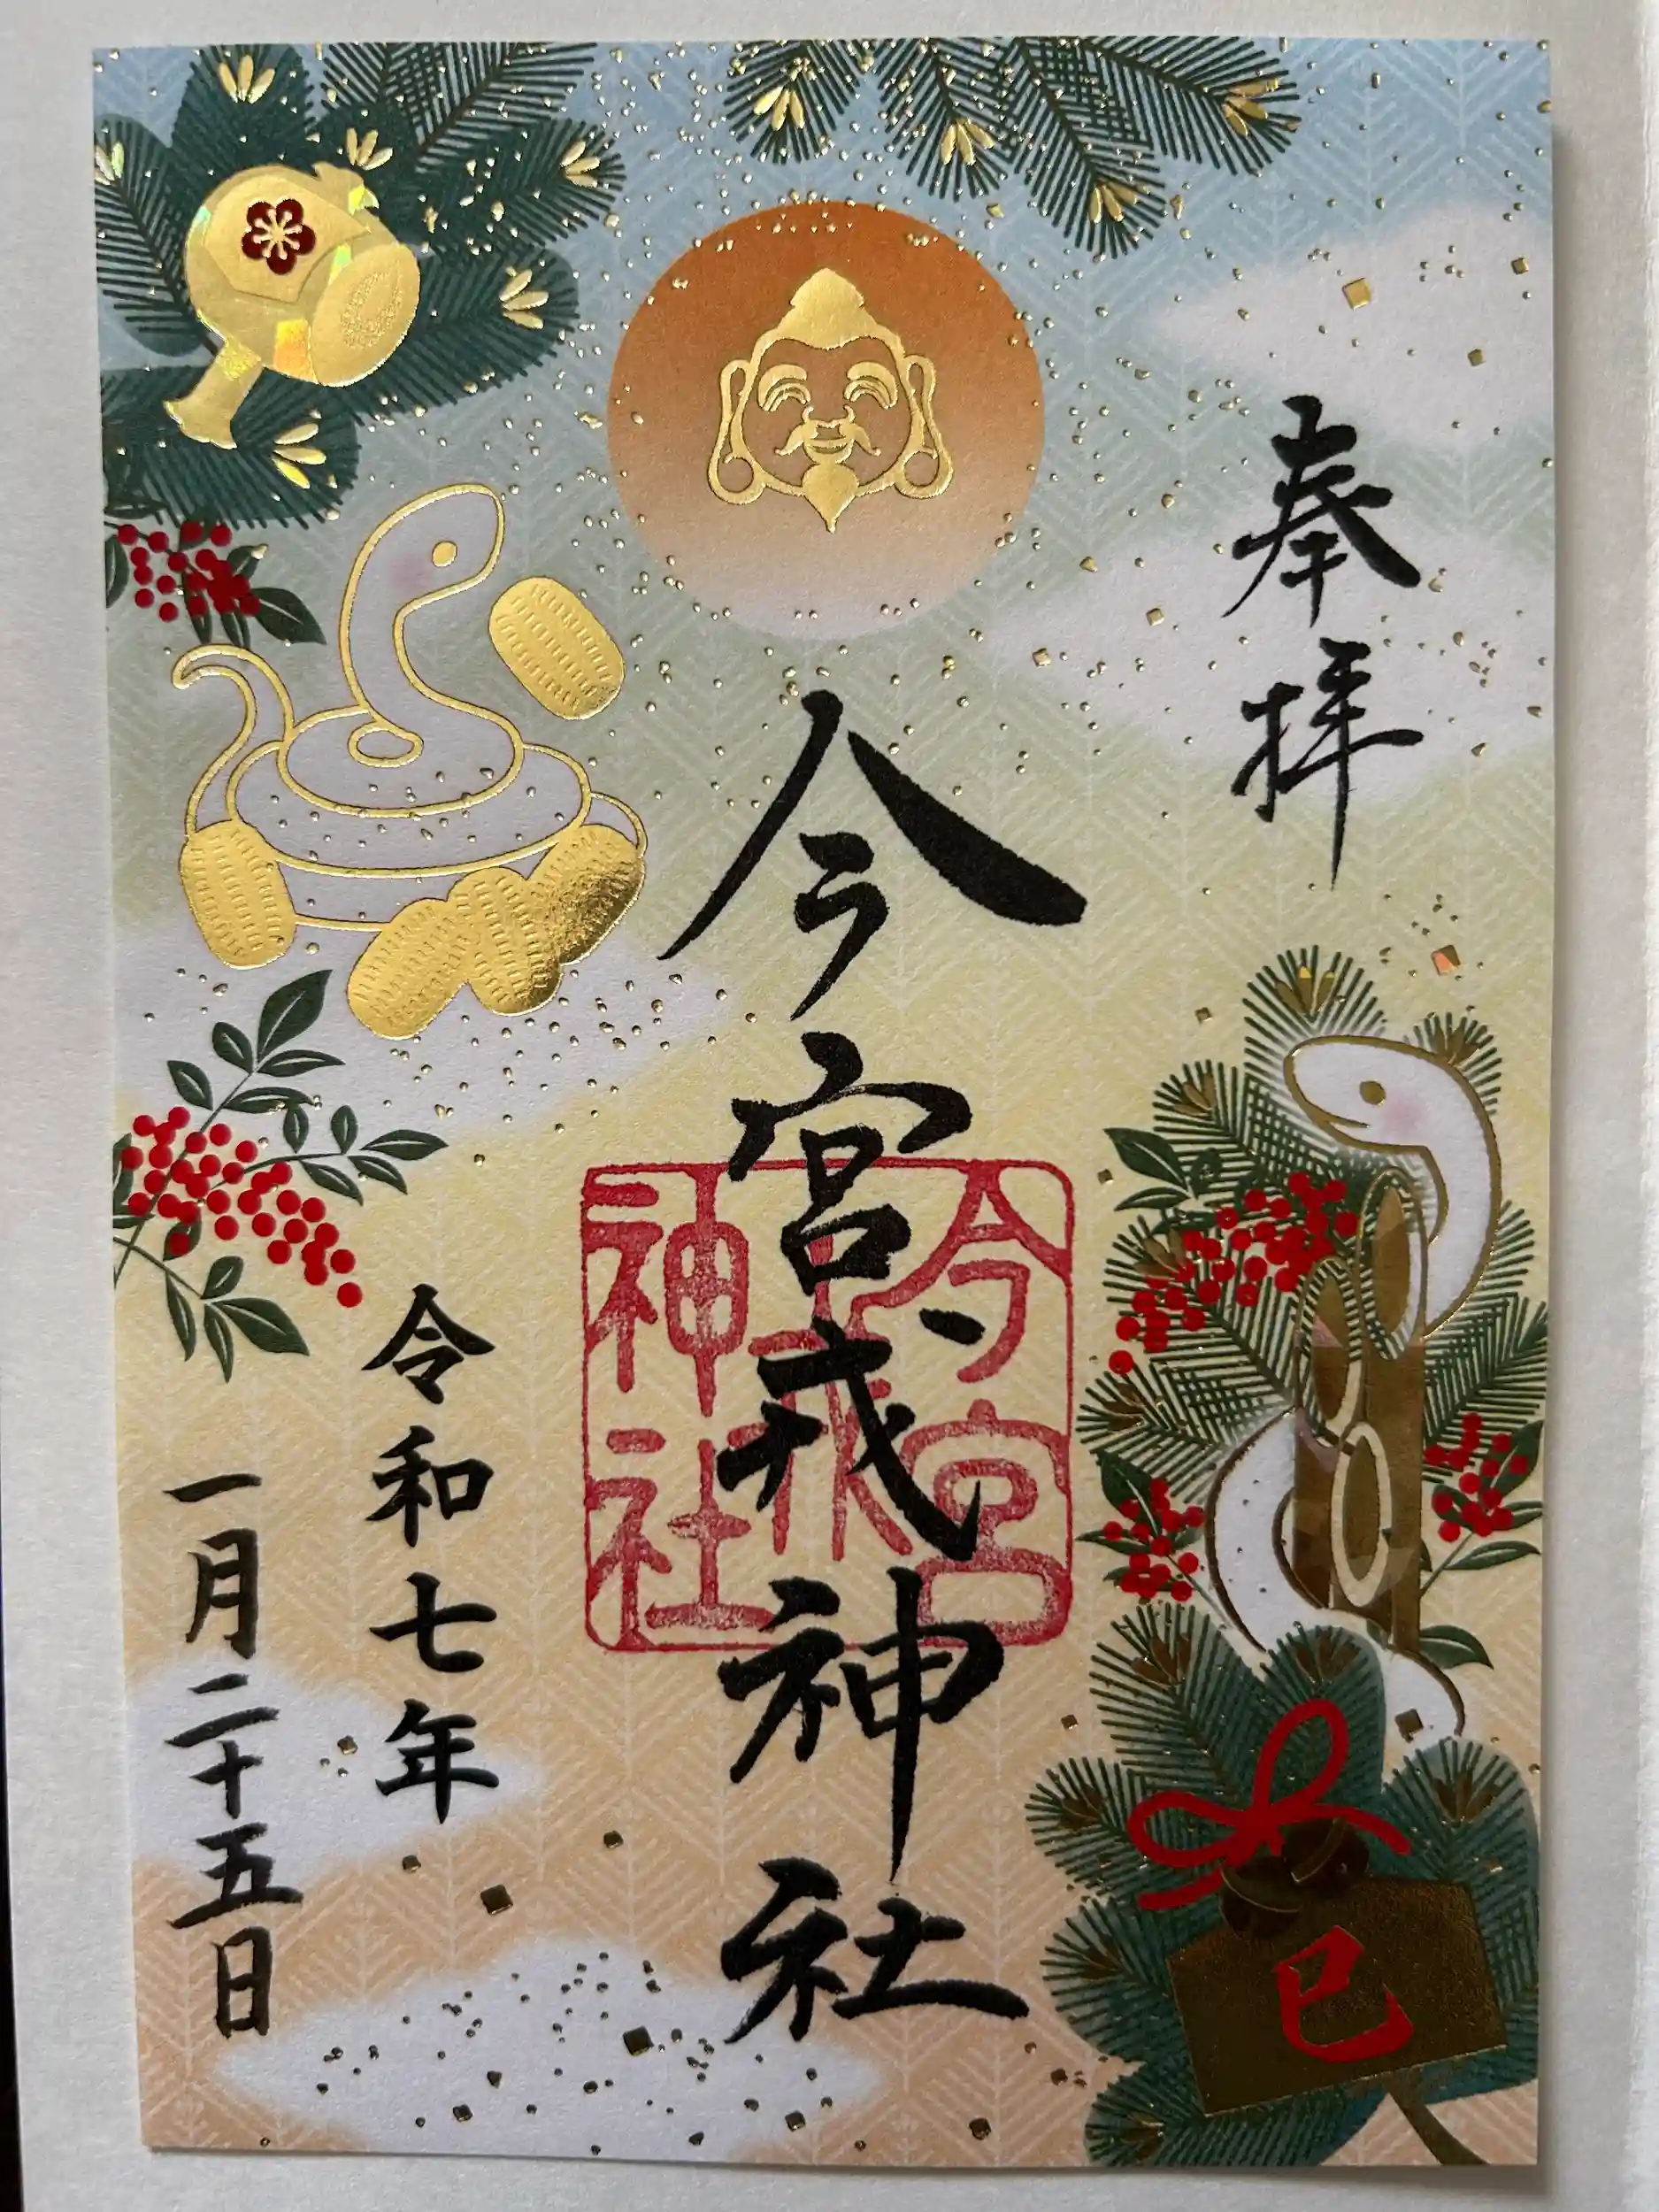 奉拝
今宮戎神社
今宮戎神社
令和七年
一月二十五日
巳